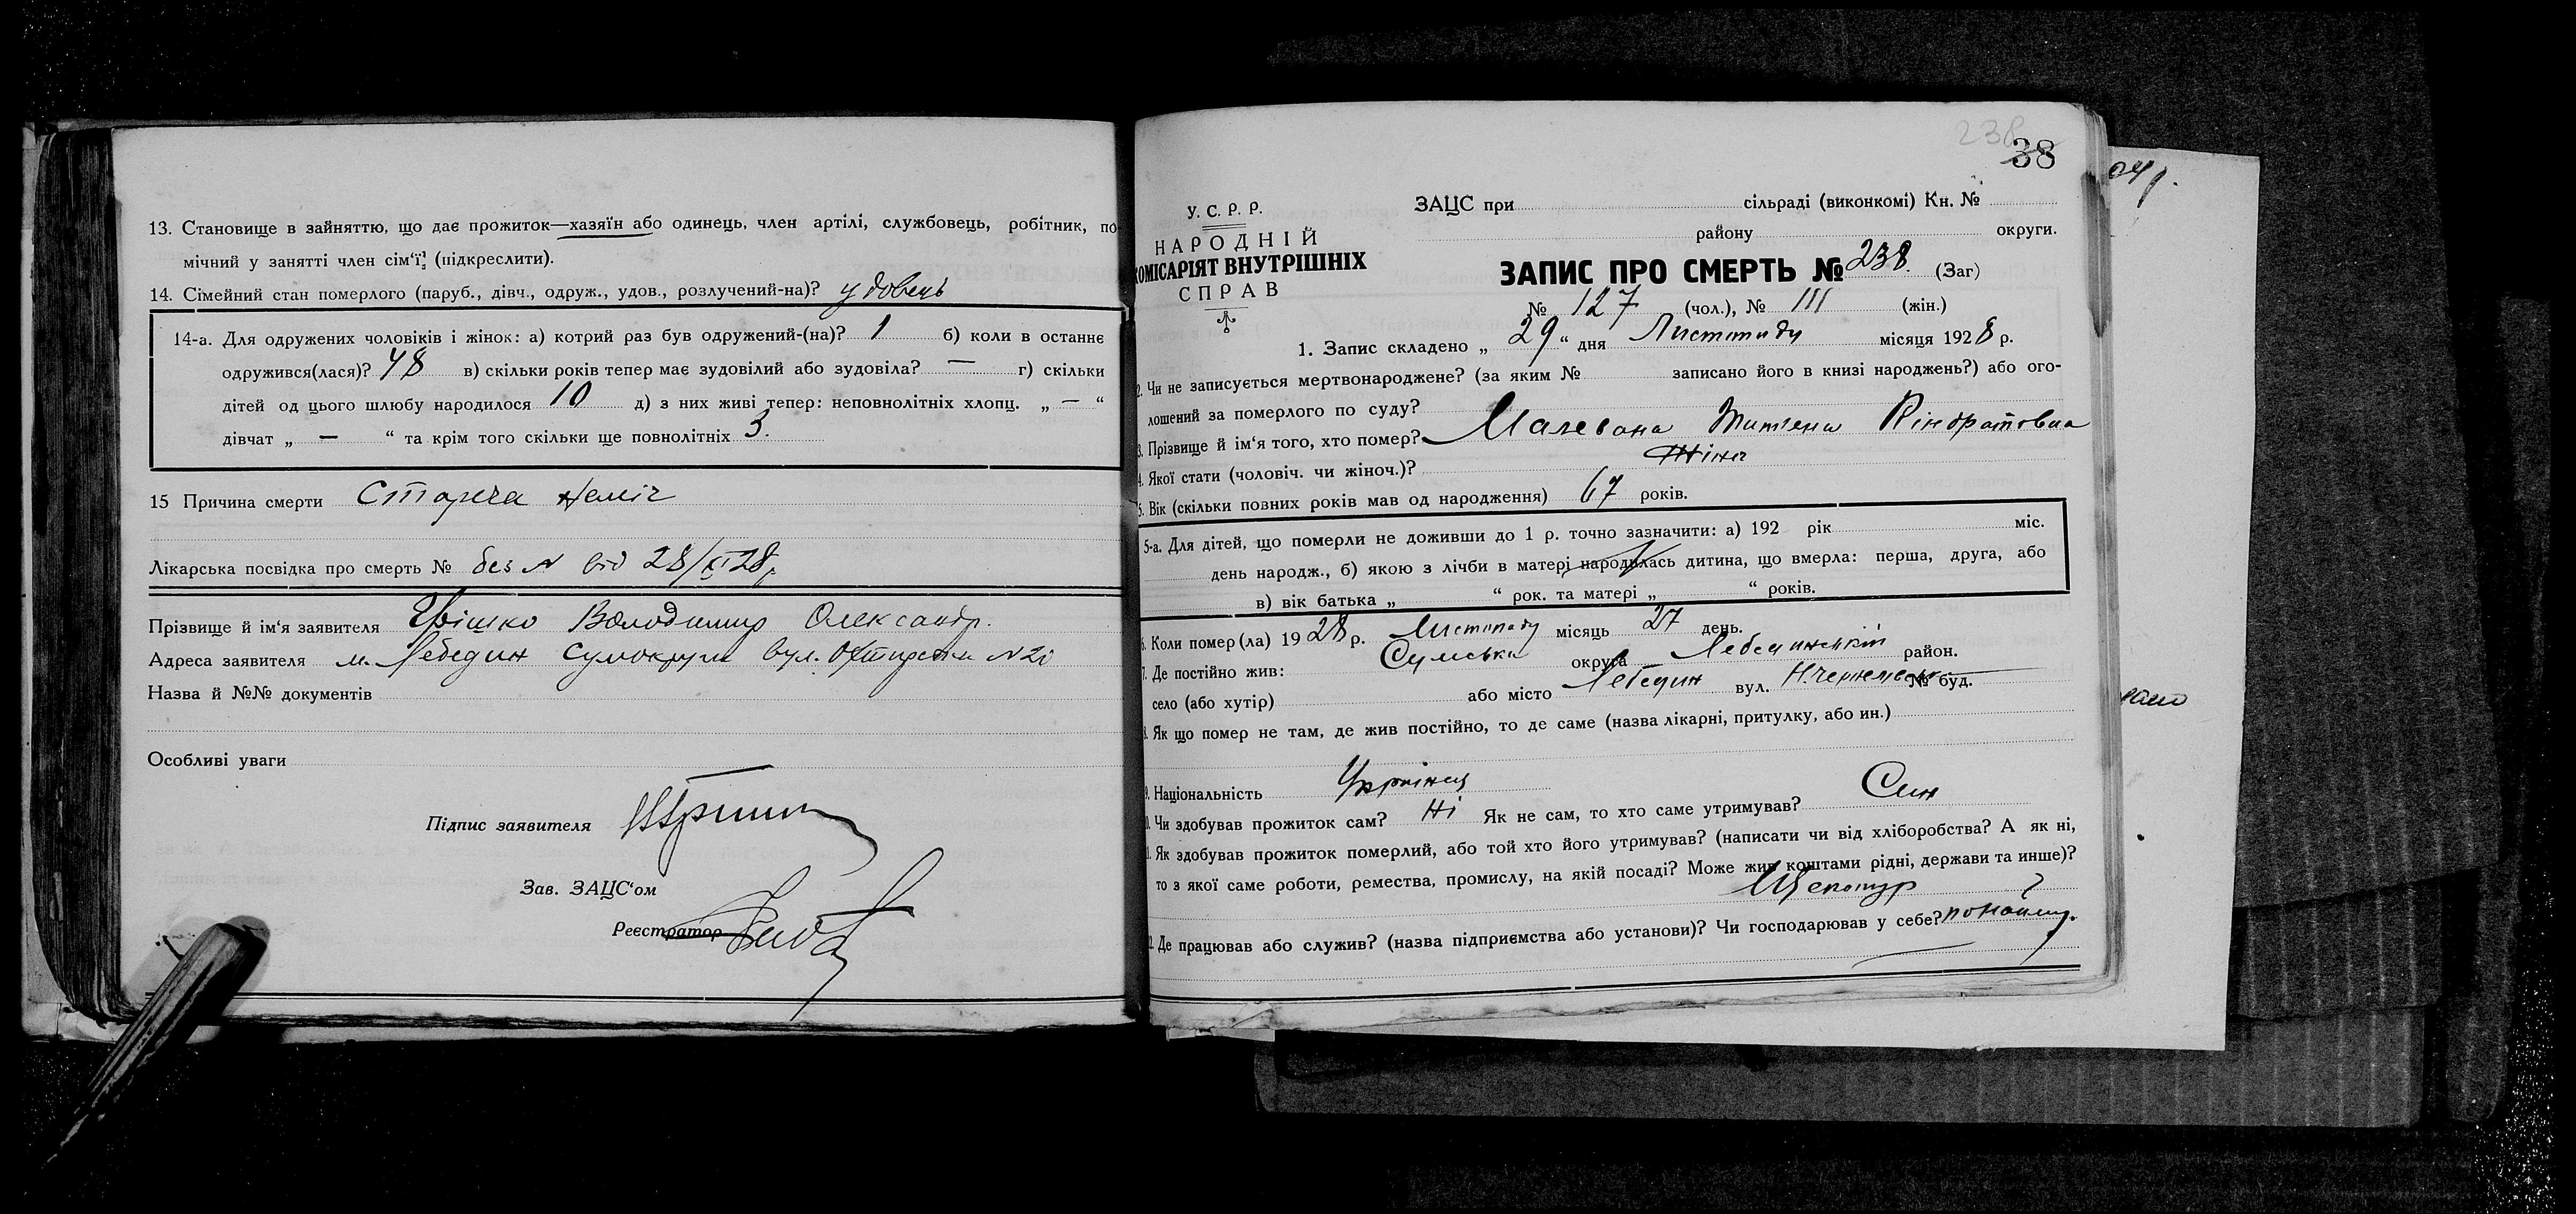 13. Становище в зайняттю, що дає прожиток—хазяїн або одинець, член артілі, службовець, робітник, по-
мічний у занятті член сім'ї (підкреслити).
14. Сімейний стан померлого (паруб., дівч., одруж., удов., розлучений-на)? удовець
14-а. Для одружених чоловіків і жінок: а) котрий раз був одружений-(на)? 1 б) коли в останнє
одружився(лася)? 48 в) скільки років тепер має зудовілий або зудовіла? — г) скільки
дітей од цього шлюбу народилося 10 д) з них живі тепер: неповнолітніх хлопц. „ — “
дівчат „ — “ та крім того скільки ще повнолітніх 3.
15 Причина смерти Стареча неміч
Лікарська посвідка про смерть № без N від 28/XI 28р
Прізвище й ім'я заявителя Грішко Володимир Олександр.
Адреса заявителя м. Лебедин Сумокруги вул. N 20
Назва й №№ документів
Особливі уваги
Підпис заявителя
Зав. ЗАЦС'ом
Реєстратор
238
38
У. С. Р. Р.
НАРОДНІЙ
КОМІСАРІЯТ ВНУТРІШНІХ
СПРАВ
ЗАЦС при сільраді (виконкомі) Кн. №
району округи.
ЗАПИС ПРО СМЕРТЬ № 238. (Заг)
№ 127 (чол.), № 111 (жін.)
1. Запис складено „ 29 “ дня Листопаду місяця 1928 р.
2. Чи не записується мертвонароджене? (за яким № записано його в книзі народжень?) або ого-
лошений за померлого по суду?
3. Прізвище й ім'я того, хто помер? Малевана Кіндратовна
4. Якої стати (чоловіч. чи жіноч.)? Жіноч
5. Вік (скільки повних років мав од народження) 67 років.
5-а. Для дітей, що померли не доживши до 1 р. точно зазначити: а) 192 рік міс.
день народж., б) якою з лічби в матері народилась дитина, що вмерла: перша, друга, або
в) вік батька „ “ рок. та матері „ “ років.
6. Коли помер(ла) 1928 р. Листопаду місяць 27 день.
7. Де постійно жив: Сумська округа Лебединський район.
село (або хутір) або місто Лебедин вул. № буд.
8. Як що помер не там, де жив постійно, то де саме (назва лікарні, притулку, або ин.)
9. Національність Українец
10. Чи здобував прожиток сам? Ні Як не сам, то хто саме утримував? Син
11. Як здобував прожиток померлий, або той хто його утримував? (написати чи від хліборобства? А як ні,
то з якої саме роботи, ремества, промислу, на якій посаді? Може жив коштами рідні, держави та инше)?
12. Де працював або служив? (назва підприємства або установи)? Чи господарював у себе?